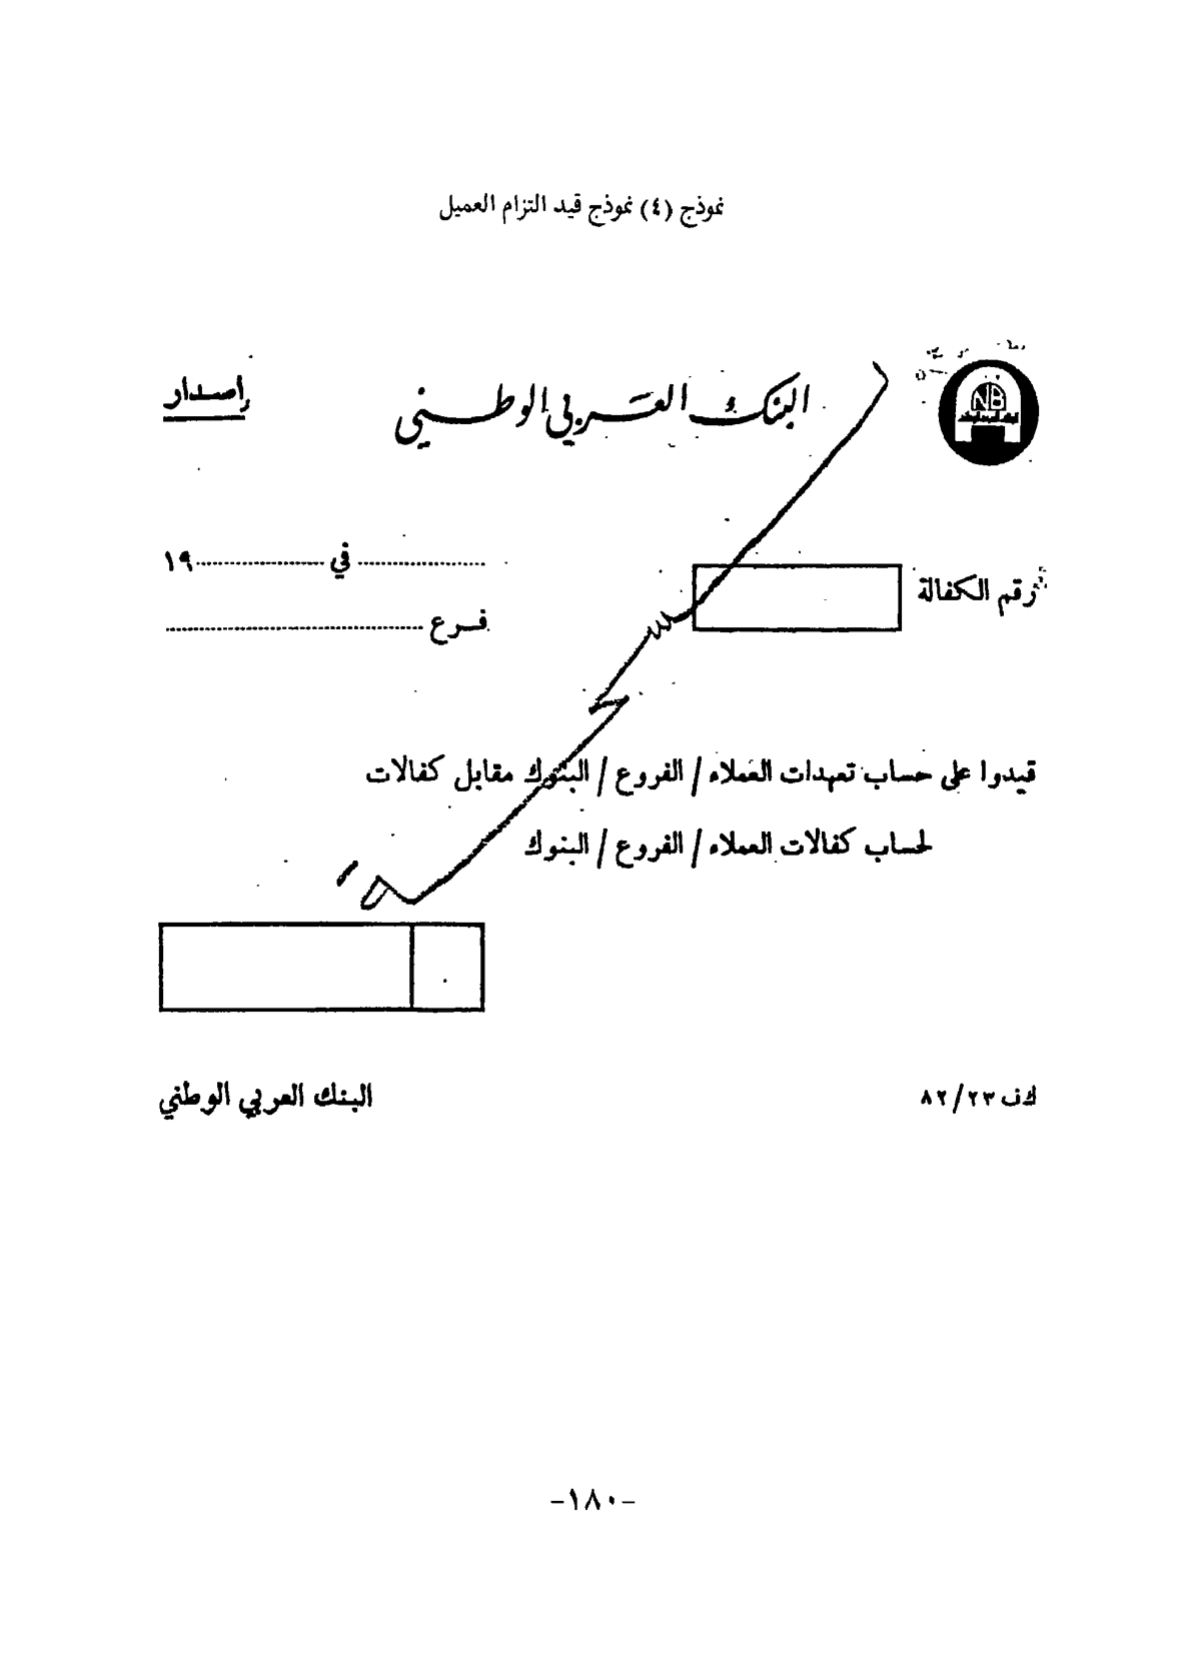 نموذج (٤) نموذج قيد التزام العميل
البنك العربي الوطني
إصدار
رقم الكفالة
في ١٩
فرع
قيدوا على حساب تعهدات العملاء / الفروع / البنوك مقابل كفالات
لحساب كفالات العملاء / الفروع / البنوك
ك ف ٨٢/٢٣
البنك العربي الوطني
-١٨٠-